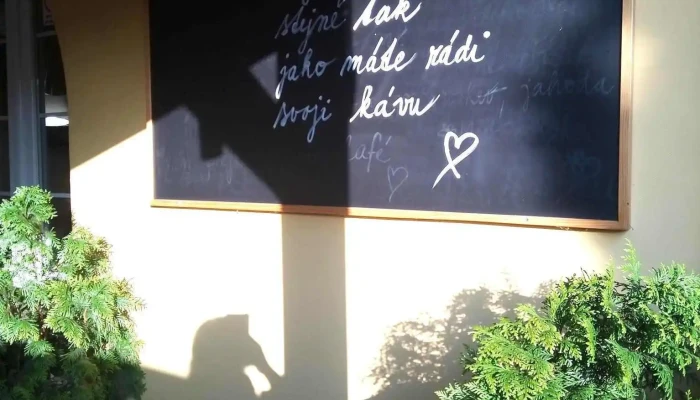 stejně tak
jako máte rádi
svoji kávu
café
jahoda